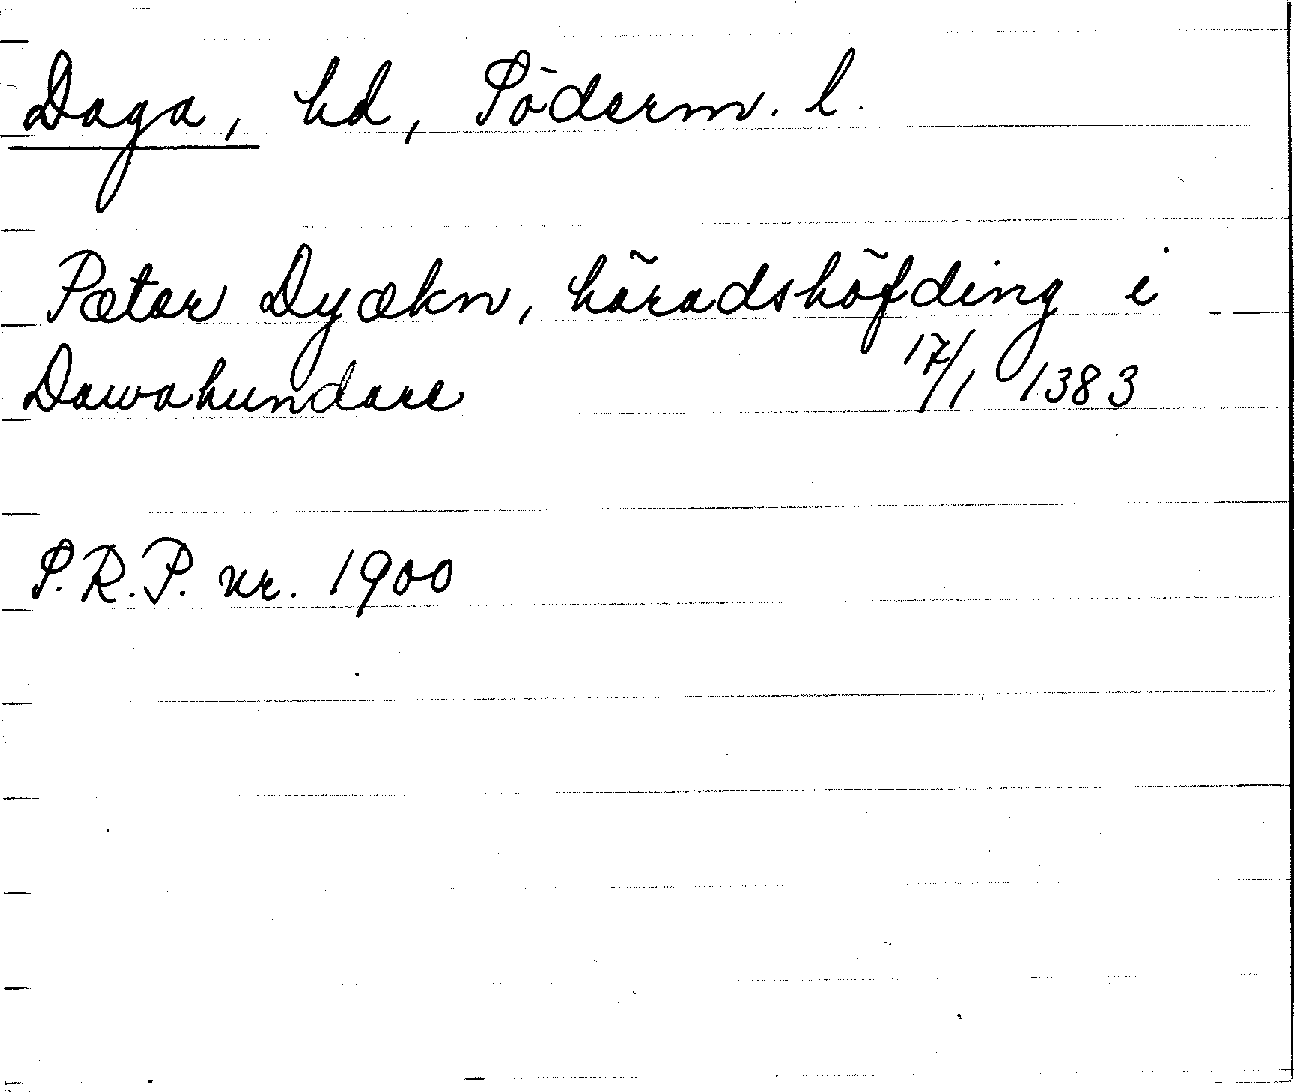 Daga, hd, Söderm. l.
Pætar Dyækn, häradshöfding i
Dawahundare 17/1 1383
S.R.P. nr. 1900